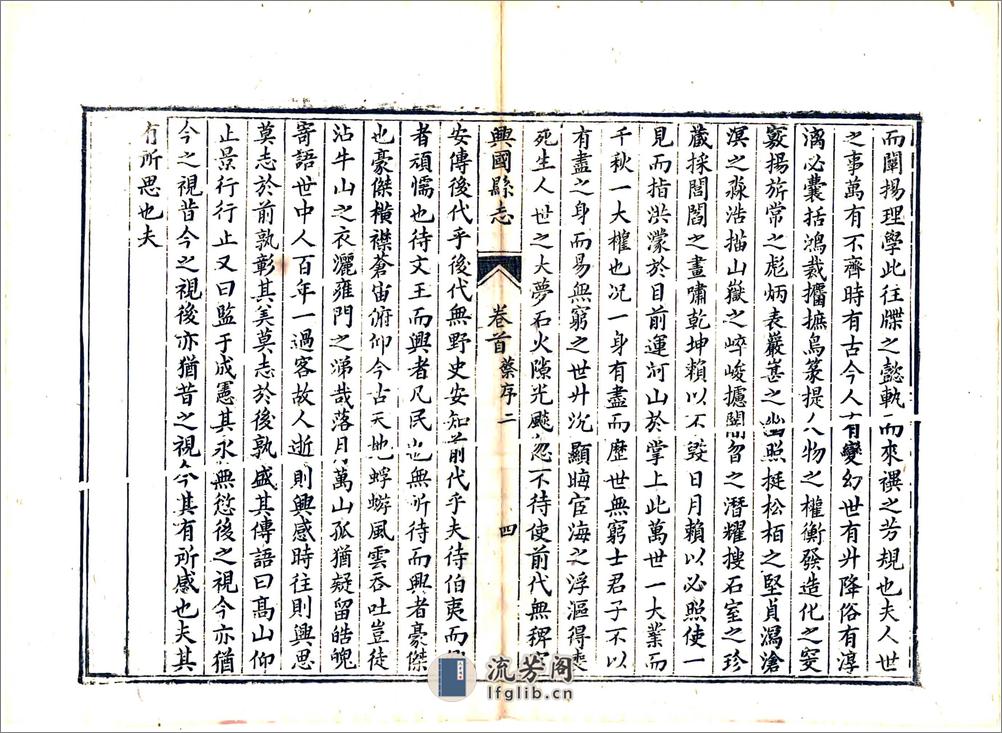 而闡揚理學此往牒之懿軌而來禩之芳規也夫人世
之事萬有不齊時有古今人有變幻世有升降俗有淳
漓必囊括鴻裁攟摭鳥篆提人物之權衡發造化之突
窽揚旂常之彪炳表巖嵓之幽照挺松栢之堅貞瀉滄
溟之淼浩描山嶽之崪峻攄闇智之潛耀搜石室之珍
藏採閭閻之畫嘯乾坤賴以不毀日月賴以必照使一
見而指洪濛於目前運河山於掌上此萬世一大業而
千秋一大權也况一身有盡而歷世無窮士君子不以
有盡之身而易無窮之世升沉顯晦宦海之浮漚得喪
死生人世之大夢石火隙光飈忽不待使前代無稗
興國縣志
卷首
蔡序二
四
安傳後代乎後代無野史安知前代乎夫待伯夷而
者頑懦也待文王而興者凡民也無所待而興者豪傑
也豪傑橫襟蒼宙俯仰今古天地蜉蝣風雲吞吐豈徒
沾牛山之衣灑雍門之涕哉落月萬山孤猶疑留皓魄
寄語世中人百年一過客故人逝則興感時往則興思
莫志於前孰彰其美莫志於後孰盛其傳語曰高山仰
止景行行止又曰監于成憲其永無愆後之視今亦猶
今之視昔今之視後亦猶昔之視今其有所感也夫其
有所思也夫
流芳阁
lfglib.cn